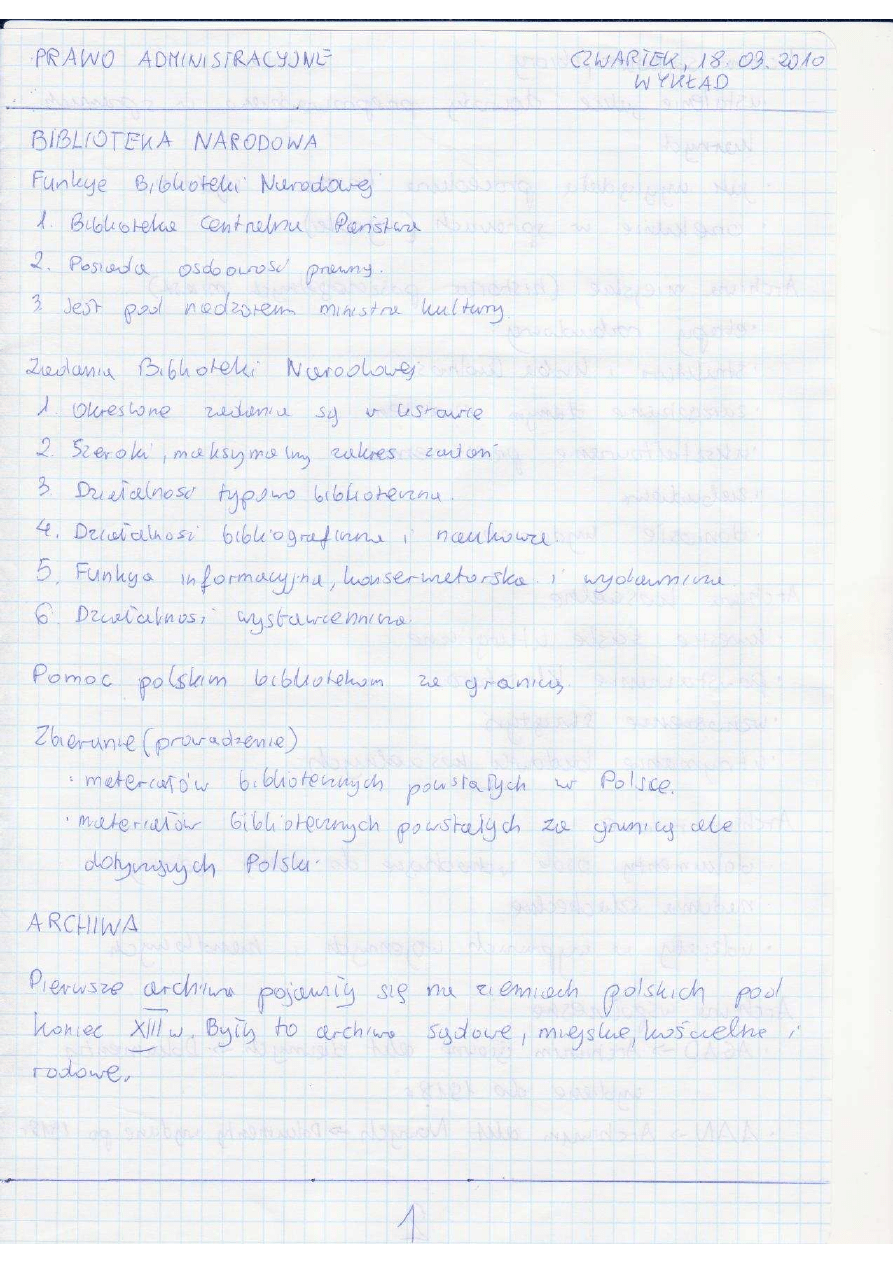 PRAWO ADMINISTRACYJNE
CZWARTEK, 18.03.2010
WYKŁAD
BIBLIOTEKA NARODOWA
Funkcje Biblioteki Narodowej
1. Biblioteka Centralna Państwa
2. Posiada osobowość prawną.
3. Jest pod nadzorem ministra kultury.
Zadania Biblioteki Narodowej
1. Określone zadania są w ustawie
2. Szeroki, maksymalny zakres zadań
3. Działalność typowo biblioteczna.
4. Działalność bibliograficzna i naukowa.
5. Funkcja informacyjna, konserwatorska i wydawnicza.
6. Działalność wystawiennicza.
Pomoc polskim bibliotekom za granicą.
Zbieranie (prowadzenie)
· materiałów bibliotecznych powstałych w Polsce.
· materiałów bibliotecznych powstałych za granicą ale
dotyczących Polski.
ARCHIWA
Pierwsze archiwa pojawiły się na ziemiach polskich pod
koniec XIII w. Były to archiwa sądowe, miejskie, kościelne i
rodowe.
1